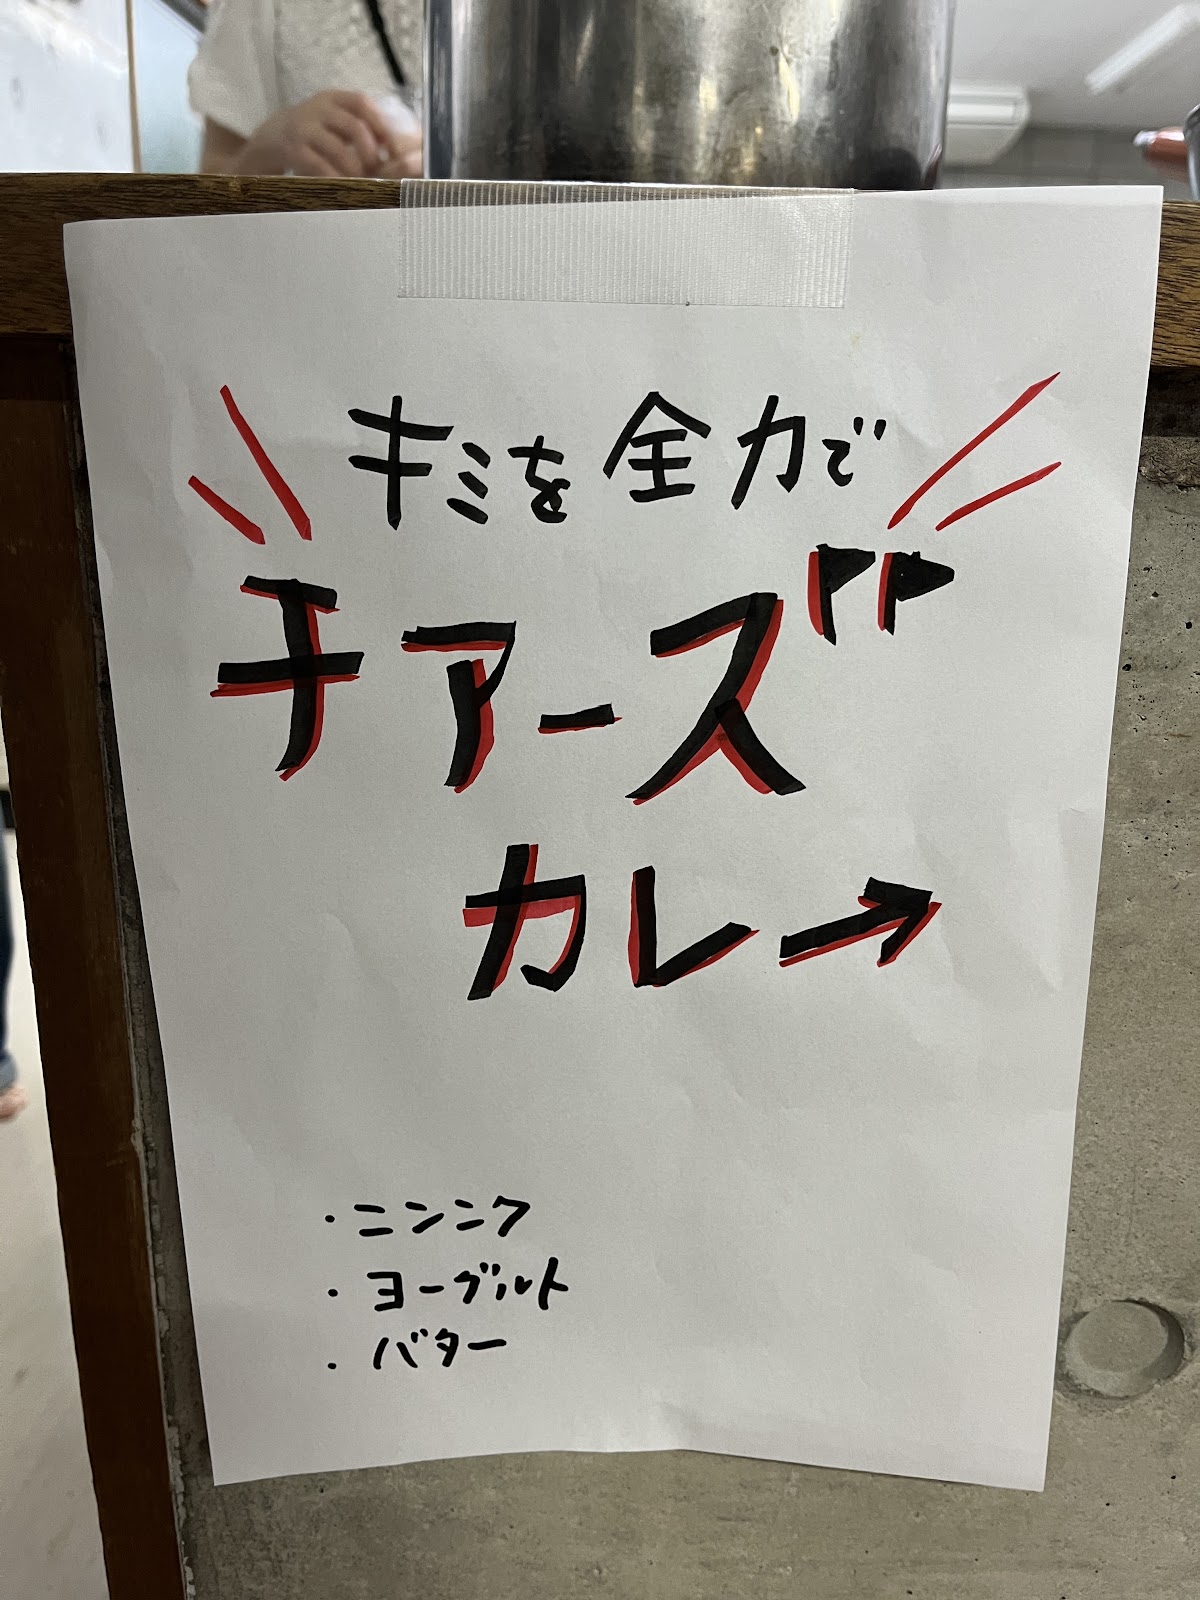 キミを全力で
チアーズ
カレー
・ニンニク
・ヨーグルト
・バター